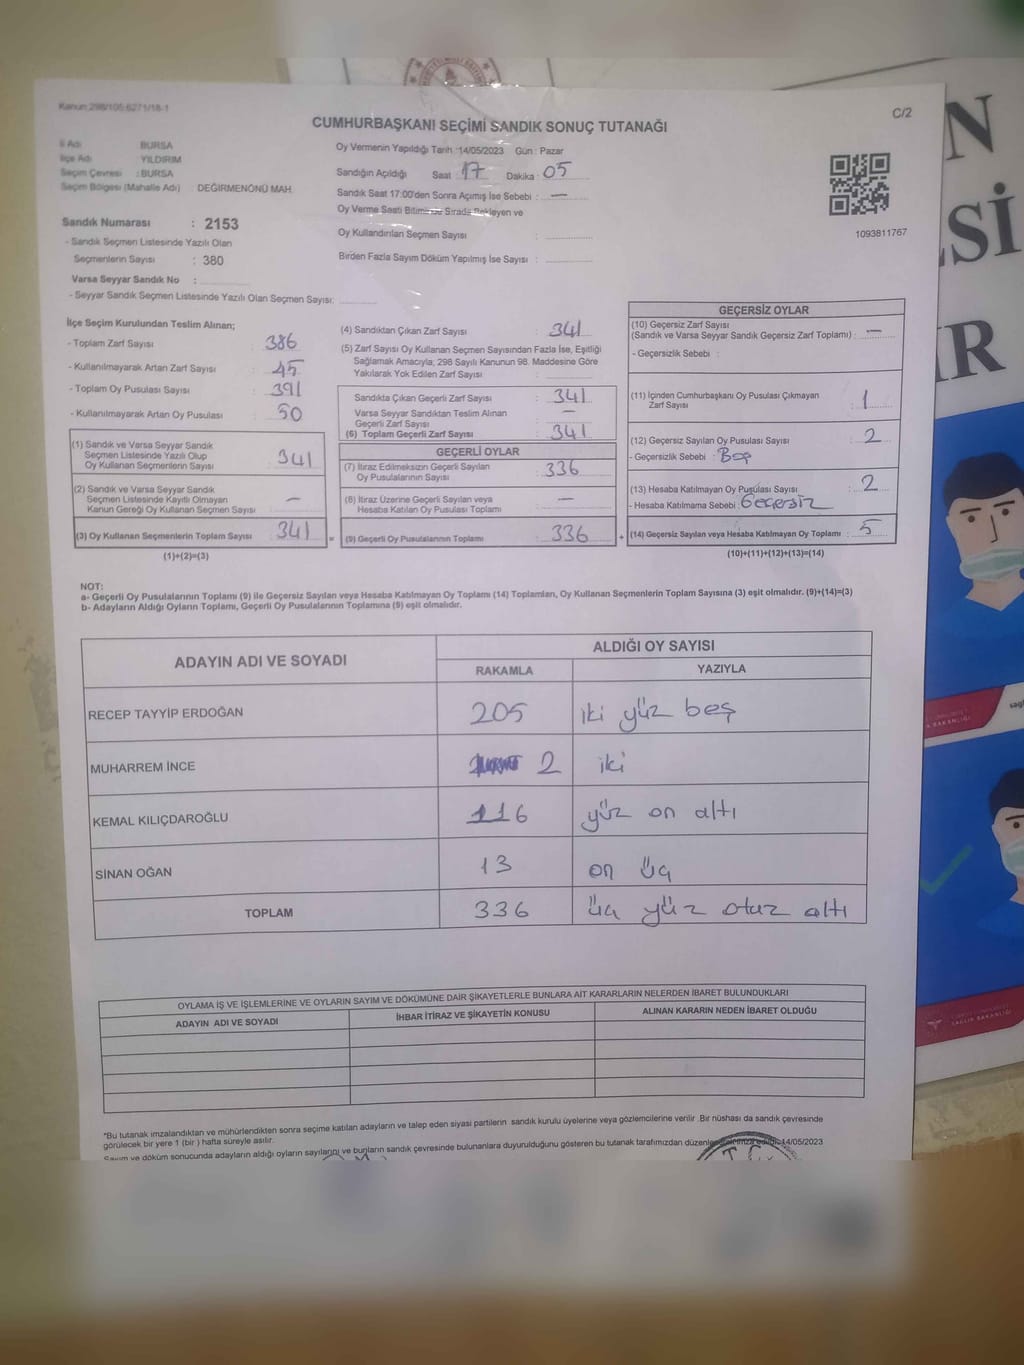 Kanun:298/105:6271/18-1
C/2
CUMHURBAŞKANI SEÇİMİ SANDIK SONUÇ TUTANAĞI
İl Adı BURSA
İlçe Adı YILDIRIM
Seçim Çevresi :BURSA
Seçim Bölgesi (Mahalle Adı) DEĞİRMENÖNÜ MAH.
Sandık Numarası : 2153
- Sandık Seçmen Listesinde Yazılı Olan
Seçmenlerin Sayısı : 380
Varsa Seyyar Sandık No :
- Seyyar Sandık Seçmen Listesinde Yazılı Olan Seçmen Sayısı:
Oy Vermenin Yapıldığı Tarih :14/05/2023 Gün : Pazar
Sandığın Açıldığı Saat : 17 Dakika : 05
Sandık Saat 17:00'den Sonra Açımış İse Sebebi : —
Oy Verme Saati Bitiminde Sırada Bekleyen ve
Oy Kullandırılan Seçmen Sayısı :
Birden Fazla Sayım Döküm Yapılmış İse Sayısı :
1093811767
İlçe Seçim Kurulundan Teslim Alınan;
- Toplam Zarf Sayısı : 386
- Kullanılmayarak Artan Zarf Sayısı : 45
- Toplam Oy Pusulası Sayısı : 391
- Kullanılmayarak Artan Oy Pusulası : 50
(1) Sandık ve Varsa Seyyar Sandık
Seçmen Listesinde Yazılı Olup
Oy Kullanan Seçmenlerin Sayısı : 341
(2) Sandık ve Varsa Seyyar Sandık
Seçmen Listesinde Kayıtlı Olmayan
Kanun Gereği Oy Kullanan Seçmen Sayısı : —
(3) Oy Kullanan Seçmenlerin Toplam Sayısı : 341 =
(1)+(2)=(3)
(4) Sandıktan Çıkan Zarf Sayısı : 341
(5) Zarf Sayısı Oy Kullanan Seçmen Sayısından Fazla İse, Eşitliği
Sağlamak Amacıyla; 298 Sayılı Kanunun 98. Maddesine Göre
Yakılarak Yok Edilen Zarf Sayısı :
Sandıkta Çıkan Geçerli Zarf Sayısı : 341
Varsa Seyyar Sandıktan Teslim Alınan
Geçerli Zarf Sayısı : —
(6) Toplam Geçerli Zarf Sayısı : 341
GEÇERLİ OYLAR
(7) İtiraz Edilmeksizin Geçerli Sayılan
Oy Pusulalarının Sayısı : 336
(8) İtiraz Üzerine Geçerli Sayılan veya
Hesaba Katılan Oy Pusulası Toplamı : —
(9) Geçerli Oy Pusulalarının Toplamı : 336 +
GEÇERSİZ OYLAR
(10) Geçersiz Zarf Sayısı
(Sandık ve Varsa Seyyar Sandık Geçersiz Zarf Toplamı) : —
- Geçersizlik Sebebi :
(11) İçinden Cumhurbaşkanı Oy Pusulası Çıkmayan
Zarf Sayısı : 1
(12) Geçersiz Sayılan Oy Pusulası Sayısı : 2
- Geçersizlik Sebebi : Boş
(13) Hesaba Katılmayan Oy Pusulası Sayısı : 2
- Hesaba Katılmama Sebebi : Geçersiz
(14) Geçersiz Sayılan veya Hesaba Katılmayan Oy Toplamı : 5
(10)+(11)+(12)+(13)=(14)
NOT:
a- Geçerli Oy Pusulalarının Toplamı (9) ile Geçersiz Sayılan veya Hesaba Katılmayan Oy Toplamı (14) Toplamları, Oy Kullanan Seçmenlerin Toplam Sayısına (3) eşit olmalıdır. (9)+(14)=(3)
b- Adayların Aldığı Oyların Toplamı, Geçerli Oy Pusulalarının Toplamına (9) eşit olmalıdır.
ADAYIN ADI VE SOYADI
ALDIĞI OY SAYISI
RAKAMLA YAZIYLA
RECEP TAYYİP ERDOĞAN 205 iki yüz beş
MUHARREM İNCE 2 iki
KEMAL KILIÇDAROĞLU 116 yüz on altı
SİNAN OĞAN 13 on üç
TOPLAM 336 üç yüz otuz altı
OYLAMA İŞ VE İŞLEMLERİNE VE OYLARIN SAYIM VE DÖKÜMÜNE DAİR ŞİKAYETLERLE BUNLARA AİT KARARLARIN NELERDEN İBARET BULUNDUKLARI
ADAYIN ADI VE SOYADI İHBAR İTİRAZ VE ŞİKAYETİN KONUSU ALINAN KARARIN NEDEN İBARET OLDUĞU
*Bu tutanak imzalandıktan ve mühürlendikten sonra seçime katılan adayların ve talep eden siyasi partilerin sandık kurulu üyelerine veya gözlemcilerine verilir .Bir nüshası da sandık çevresinde
görülecek bir yere 1 (bir ) hafta süreyle asılır.
Sayım ve döküm sonucunda adayların aldığı oyların sayılarını ve bunların sandık çevresinde bulunanlara duyurulduğunu gösteren bu tutanak tarafımızdan 14/05/2023
T.C.
N
Sİ
IR
SAĞLIK BAKANLIĞI